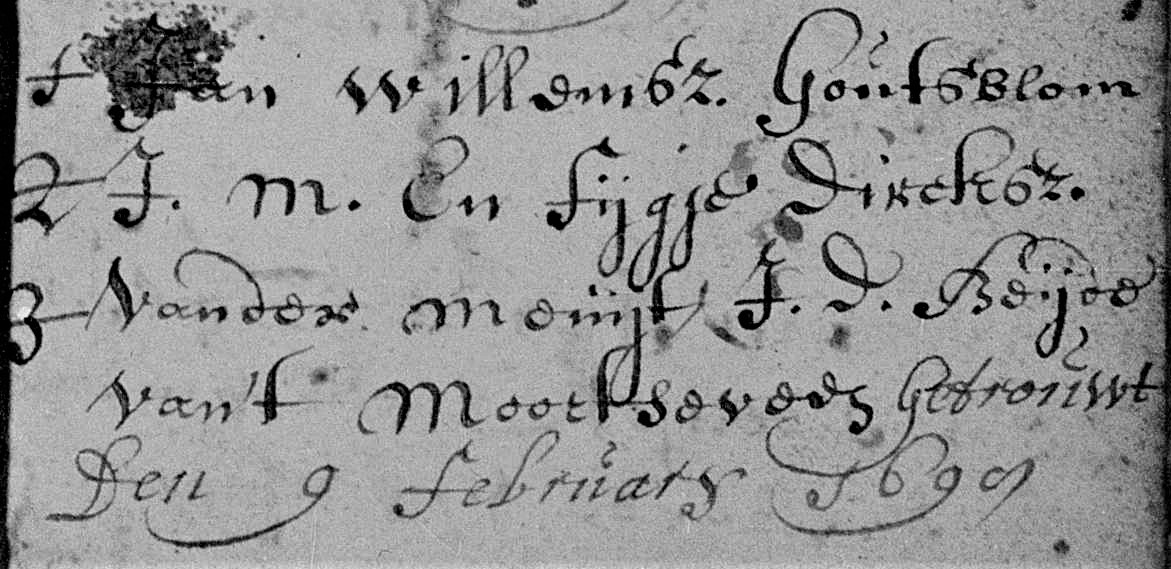 1 Jan Willemsz. Goutsblom
2 J. M. En Fijgje Dircksz.
3 vander meijt J. D. Beijde
van't Moortseveen Getrouwt
Den 9 februarÿ 1690